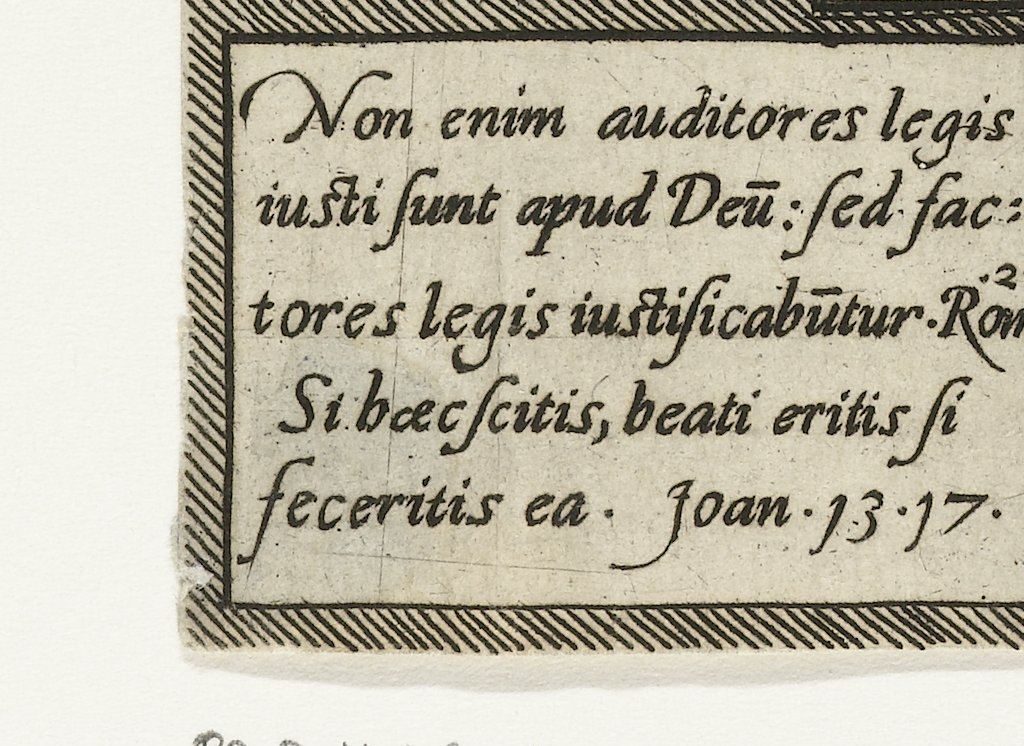 Non enim auditores legis
iusti sunt apud Deū: sed fac=
tores legis iustificabūtur. Rom 2
Si hæc scitis, beati eritis si
feceritis ea. Joan. 13. 17.